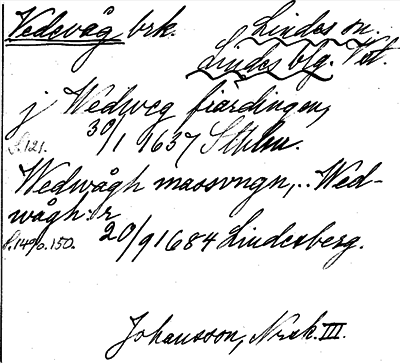 Vedevåg brk. Lindes sn.
Lindes blg. Vstm.
j Wedweg fiärdingen,
s. 121. 30/1 1637 Sthlm.
Wedwågh massvngn,.. Wed-
wågh:r
s. 149 o. 150. 20/9 1684 Lindesberg.
Johansson, Norask. III.